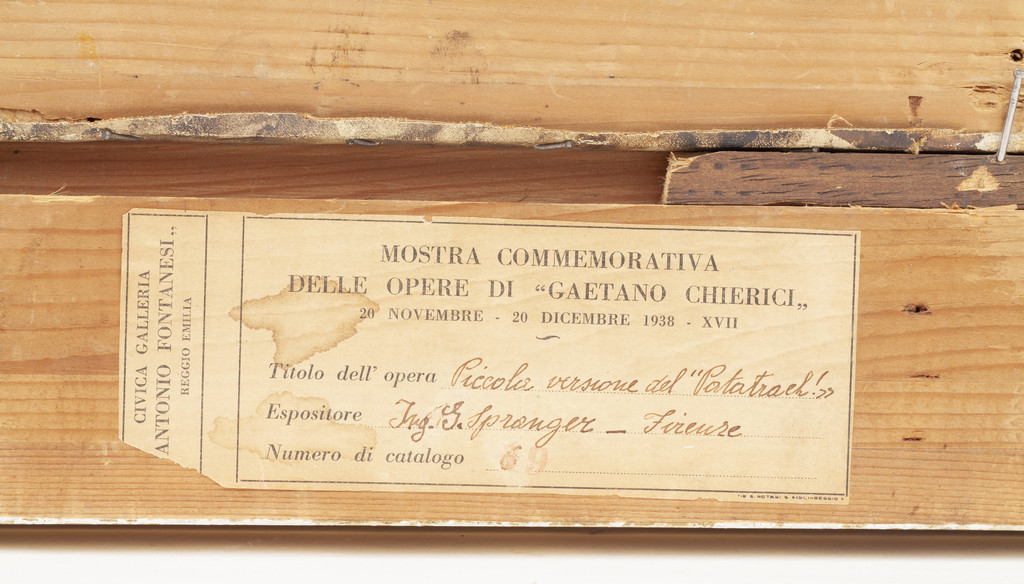 CIVICA GALLERIA
ANTONIO FONTANESI„
REGGIO EMILIA
MOSTRA COMMEMORATIVA
DELLE OPERE DI “GAETANO CHIERICI„
20 NOVEMBRE - 20 DICEMBRE 1938 - XVII
Titolo dell' opera Piccola versione del "Patatrach!»
Espositore Ing. G. Spranger – Firenze
Numero di catalogo 69